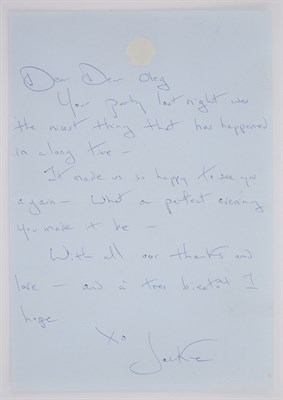 Dear Dear Oleg
Your party last night was
the nicest thing that has happened
in a long time –
It made us so happy to see you
again – What a perfect evening
you made it be –
With all our thanks and
love – and à tres bientot I
hope
XO
Jackie